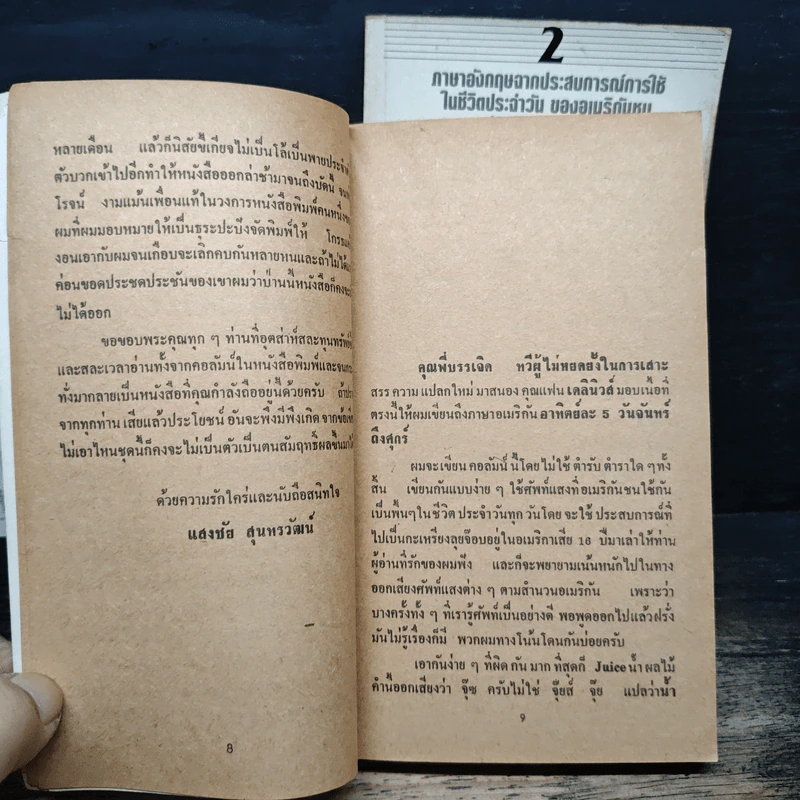 2
ภาษาอังกฤษจากประสบการณ์การใช้
ในชีวิตประจำวัน ของอเมริกันชน
หลายเดือน แล้วก็นิสัยขี้เกียจไม่เป็นโล้เป็นพายประจำ
ตัวบวกเข้าไปอีกทำให้หนังสือออกล่าช้ามาจนถึงบัดนี้
โรจน์ งามแม้นเพื่อนแท้ในวงการหนังสือพิมพ์คนหนึ่ง
ผมที่ผมมอบหมายให้เป็นธุระปะบึงจัดพิมพ์ให้
งอนเอากับผมจนเกือบจะเลิกคบกันหลายหนและถ้าไม่ได้
ค่อนขอดประชดประชันของเขาผมว่าป่านนี้หนังสือก็คง
ไม่ได้ออก
ขอขอบพระคุณทุก ๆ ท่านที่อุตส่าห์สละทุนทรัพย์
และสละเวลาอ่านทั้งจากคอลัมน์ในหนังสือพิมพ์และจน
ทั่งมากลายเป็นหนังสือที่คุณกำลังถืออยู่นี้ด้วยครับ
จากทุกท่าน เสียแล้วประโยชน์ อันจะพึงมีพึงเกิด จากข้อเขี
ไม่เอาไหนชุดนี้ก็คงจะไม่เป็นตัวเป็นตนสัมฤทธิ์ผลขึ้นมา
ด้วยความรักใคร่และนับถือสนิทใจ
แสงชัย สุนทรวัฒน์
8
คุณพี่บรรเจิด ทวีผู้ไม่หยุดยั้งในการเสาะ
สรร ความ แปลกใหม่ มาสนอง คุณแฟน เดลินิวส์ มอบเนื้อที่
ตรงนี้ ให้ผมเขียนถึงภาษาอเมริกัน อาทิตย์ละ 5 วันจันทร์
ถึงศุกร์
ผมจะเขียน คอลัมน์ นี้โดย ไม่ใช้ ตำรับ ตำราใด ๆ ทั้ง
สิ้น เขียนกันแบบง่าย ๆ ใช้ศัพท์แสงที่อเมริกันชนใช้กัน
เป็นพื้นๆ ในชีวิต ประจำวันทุก วันโดย จะใช้ ประสบการณ์ที่
ไปเป็นกะเหรี่ยงลุยจ๊อบอยู่ในอเมริกาเสีย 16 ปีมาเล่าให้ท่าน
ผู้อ่านที่รักของผมฟัง และก็จะพยายามเน้นหนักไปในทาง
ออกเสียงศัพท์แสงต่าง ๆ ตามสำนวนอเมริกัน เพราะว่า
บางครั้งทั้ง ๆ ที่เรารู้ศัพท์เป็นอย่างดี พอพูดออกไปแล้วฝรั่ง
มันไม่รู้เรื่องก็มี พวกผมทางโน้นโดนกันบ่อยครับ
เอากันง่าย ๆ ที่ผิด กัน มาก ที่สุดก็ Juice น้ำ ผลไม้
คำนี้ออกเสียงว่า จุ๊ซ ครับไม่ใช่ จุ๊ยส์ จุ๊ย แปลว่าน้ำ
9